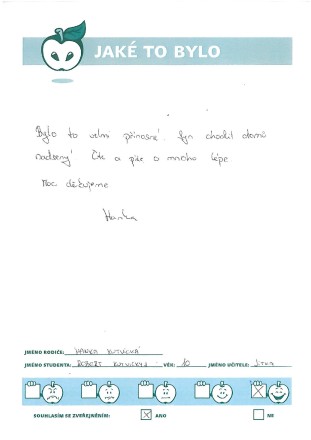 JAKÉ TO BYLO
Bylo to velmi přínosné. Syn chodil domů
nadšený. Čte a píše o mnoho lépe
Moc děkujeme
Hanka
JMÉNO RODIČE: HANKA
JMÉNO STUDENTA: ROBERT VĚK: 10 JMÉNO UČITELE: JITKA
SOUHLASÍM SE ZVEŘEJNĚNÍM: ANO NE